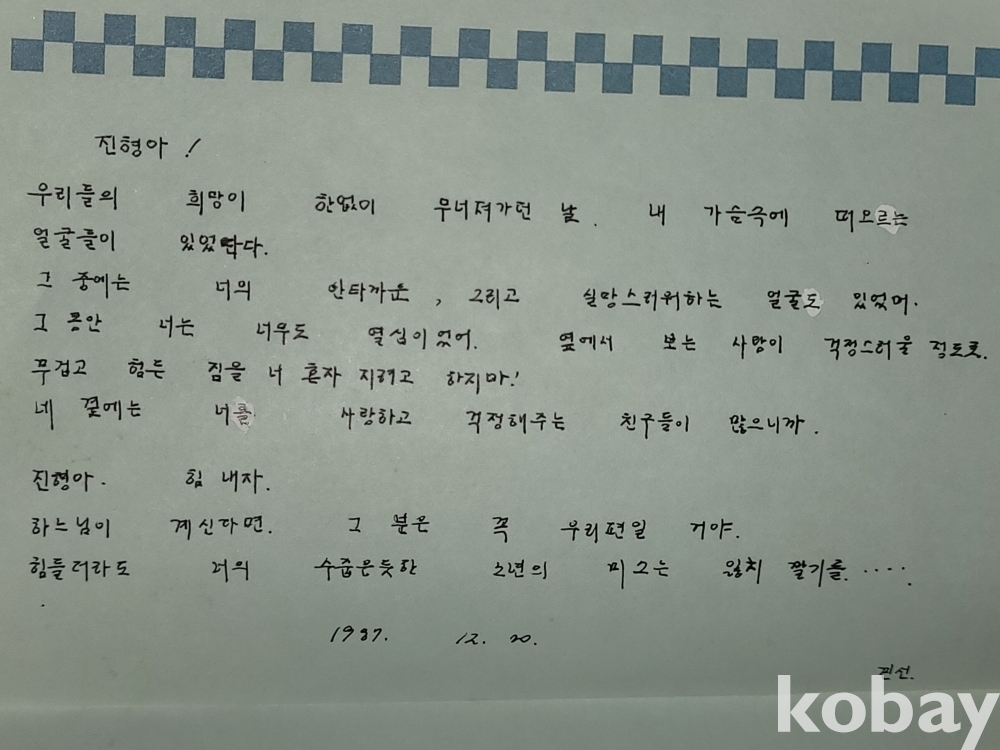 진형아!
우리들의 희망이 한없이 무너져가던 날. 내 가슴속에 떠오르는
얼굴들이 있었단다.
그 중에는 너의 안타까운, 그리고 실망스러워하는 얼굴도 있었어.
그 동안 너는 너무도 열심이었어. 옆에서 보는 사람이 걱정스러울 정도로.
무겁고 힘든 짐을 너 혼자 지려고 하지마!
네 곁에는 너를 사랑하고 걱정해주는 친구들이 많으니까.
진형아. 힘 내자.
하느님이 계신다면. 그 분은 꼭 우리편일 거야.
힘들더라도 너의 수줍은듯한 소년의 미소는 잃치 말기를.....
1987. 12. 20.
kobay